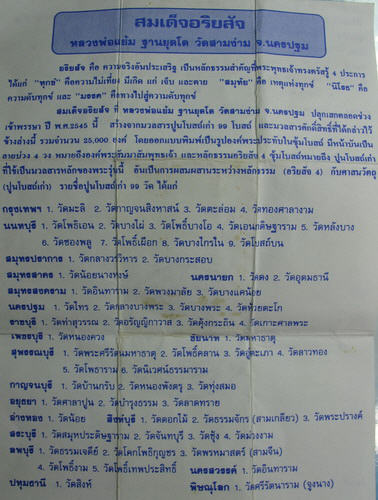 สมเด็จอริยสัจ
หลวงพ่อแย้ม ฐานยุตโต วัดสามง่าม จ.นครปฐม
อริยสัจ คือ ความจริงอันประเสริฐ เป็นหลักธรรมสำคัญที่พระพุทธเจ้าทรงตรัสรู้ 4 ประการ
ได้แก่ "ทุกข์" คือความไม่เที่ยง มีเกิด แก่ เจ็บ และตาย "สมุทัย" คือ เหตุแห่งทุกข์ "นิโรธ" คือ
ความดับทุกข์ และ "มรรค" คือทางไปสู่ความดับทุกข์
สมเด็จอริยสัจ ที่ หลวงพ่อแย้ม ฐานยุตโต วัดสามง่าม จ.นครปฐม ปลุกเสกตลอดช่วง
เข้าพรรษา ปี พ.ศ.2545 นี้ สร้างจากมวลสารปูนใบสถ์เก่า 99 ใบสถ์ และมวลสารศักดิ์สิทธิ์ที่ได้กล่าวไว้
ข้างล่างนี้ รวมจำนวน 25,000 องค์ โดยออกแบบพิมพ์เป็นรูปองค์พระประทับในซุ้มใบสถ์ มีหน้าบันเป็น
ลายบ่วง 4 วง หมายถึงองค์พระสัมมาสัมพุทธเจ้า และหลักธรรมอริยสัจ 4 ซุ้มใบสถ์หมายถึง ปูนใบสถ์เก่า
ที่ใช้เป็นมวลสารหลักของพระรุ่นนี้ อันเป็นการผสมผสานระหว่างหลักธรรม (อริยสัจ 4) กับศาสนวัตถุ
(ปูนใบสถ์เก่า) รายชื่อปูนใบสถ์เก่า 99 วัด ได้แก่
กรุงเทพฯ 1. วัดมะลิ 2. วัดกาญจนสิงหาสน์ 3. วัดตะล่อม 4. วัดทองศาลางาม
นนทบุรี 1. วัดโพธิ์เอน 2. วัดบางไผ่ 3. วัดโพธิ์บางโอ 4. วัดเอนกดิษฐาราม 5. วัดหลังบาง
6. วัดซองพลู 7. วัดโพธิ์เผือก 8. วัดบางไกรใน 9. วัดโบสถ์บน
สมุทรปราการ 1. วัดกลางวรวิหาร 2. วัดบางกระสอบ
สมุทรสาคร 1. วัดน้อยนางหงษ์ นครนายก 1. วัดดง 2. วัดอุดมธานี
สมุทรสงคราม 1. วัดอินทาราม 2. วัดพวงมาลัย 3. วัดบางแคน้อย
นครปฐม 1. วัดไทร 2. วัดกลางบางพระ 3. วัดบางพระ 4. วัดห้วยตะโก
ราชบุรี 1. วัดท่าสุวรรณ 2. วัดอรัญญิกาวาส 3. วัดคุ้งกระถิน 4. วัดเกาะศาลพระ
เพชรบุรี 1. วัดหนองควง ชัยนาท 1. วัดมหาธาตุ
สุพรรณบุรี 1. วัดพระศรีรัตนมหาธาตุ 2. วัดโพธิ์คลาน 3. วัดภูตะเภา 4. วัดลาวทอง
5. วัดโพธาราม 6. วัดนิเวศน์ธรรมาราม
กาญจนบุรี 1. วัดบ้านกรับ 2. วัดหนองพันตรุ 3. วัดทุ่งสมอ
อยุธยา 1. วัดศาลาปูน 2. วัดบำรุงธรรม 3. วัดลาดทราย
อ่างทอง 1. วัดน้อย สิงห์บุรี 1. วัดดอกไม้ 2. วัดธรรมจักร (สามเกลียว) 3. วัดพระปรางค์
สระบุรี 1. วัดสมุหประดิษฐาราม 2. วัดจันทบุรี 3. วัดซุ้ง 4. วัดม่วงงาม
ลพบุรี 1. วัดธรรมเจดีย์ 2. วัดโคกโพธิกุญชร 3. วัดพรหมาสตร์ (สามจีน)
4. วัดโพธิ์งาม 5. วัดโพธิ์เทพประสิทธิ์ นครสวรรค์ 1. วัดอินทาราม
ปทุมธานี 1. วัดสิงห์ พิษณุโลก 1. วัดศรีรัตนาราม (จูงนาง)